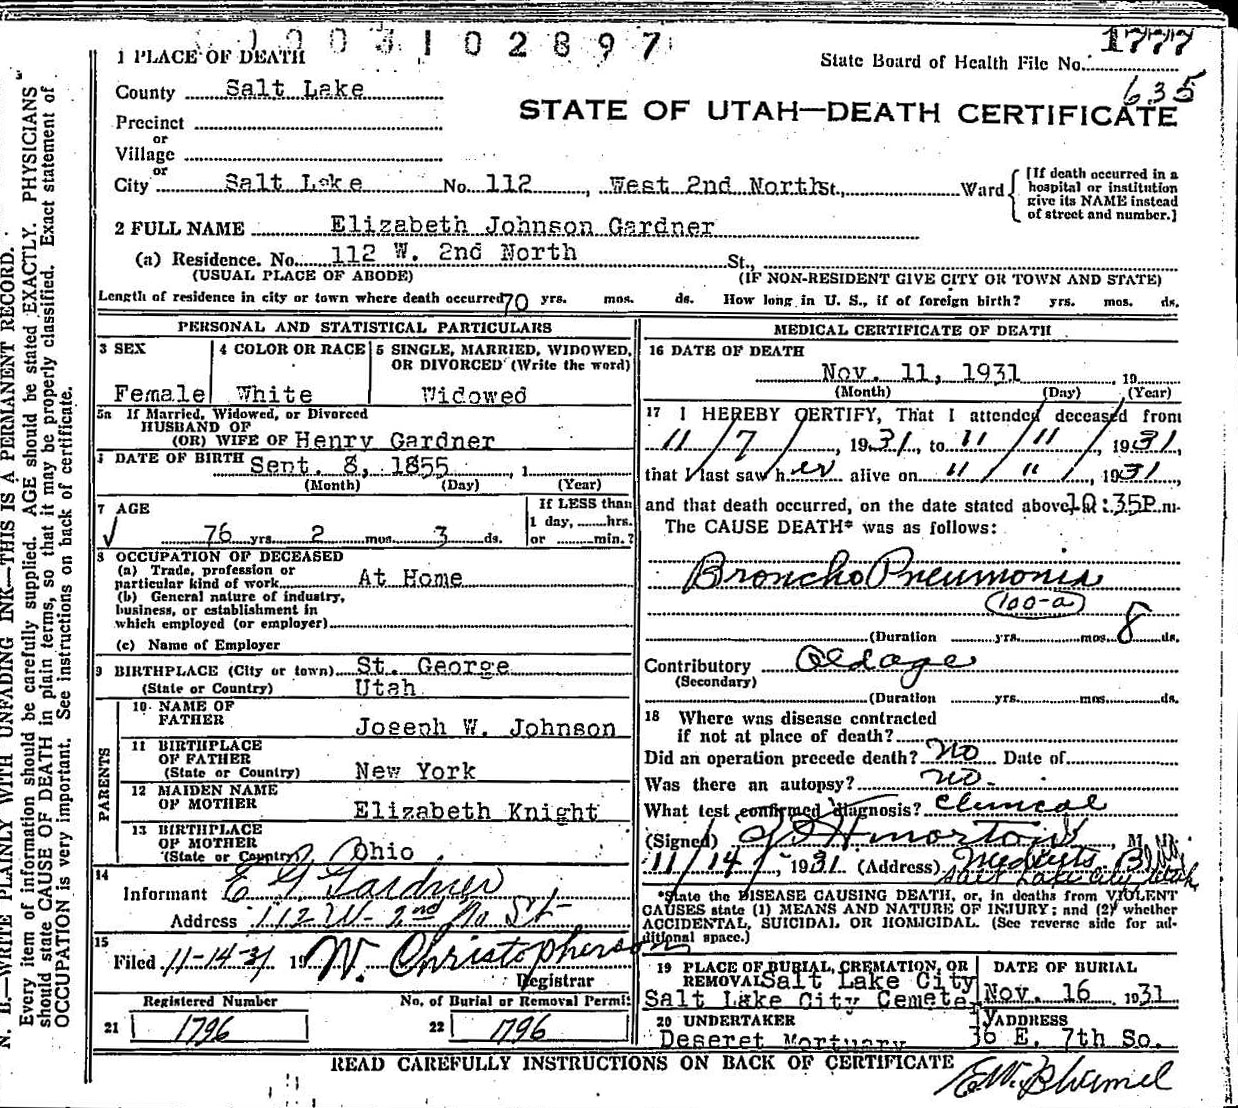 1003102897
1777
1 PLACE OF DEATH
State Board of Health File No.
635
County Salt Lake
STATE OF UTAH—DEATH CERTIFICATE
Precinct
or
Village
or
City Salt Lake No. 112, West 2nd North St., Ward
[If death occurred in a hospital or institution give its NAME instead of street and number.]
2 FULL NAME Elizabeth Johnson Gardner
(a) Residence. No. 112 W. 2nd North St.,
(USUAL PLACE OF ABODE) (IF NON-RESIDENT GIVE CITY OR TOWN AND STATE)
Length of residence in city or town where death occurred 70 yrs. mos. ds. How long in U. S., if of foreign birth? yrs. mos. ds.
PERSONAL AND STATISTICAL PARTICULARS
3 SEX
Female
4 COLOR OR RACE
White
5 SINGLE, MARRIED, WIDOWED, OR DIVORCED (Write the word)
Widowed
5a If Married, Widowed, or Divorced
HUSBAND OF
(OR) WIFE OF Henry Gardner
DATE OF BIRTH Sept. 8, 1855, 1
(Month) (Day) (Year)
7 AGE
76 yrs. 2 mos. 3 ds.
If LESS than
1 day, hrs.
or min.?
8 OCCUPATION OF DECEASED
(a) Trade, profession or
particular kind of work At Home
(b) General nature of industry,
business, or establishment in
which employed (or employer)
(c) Name of Employer
9 BIRTHPLACE (City or town) St. George
(State or Country) Utah
PARENTS
10 NAME OF
FATHER Joseph W. Johnson
11 BIRTHPLACE
OF FATHER
(State or Country) New York
12 MAIDEN NAME
OF MOTHER Elizabeth Knight
13 BIRTHPLACE
OF MOTHER
(State or Country) Ohio
14
Informant E G Gardner
Address 112 W- 2nd No St-
15
Filed 11-14-31 19 W. Christopherson
Registrar
Registered Number No. of Burial or Removal Permit
21 1796 22 1796
MEDICAL CERTIFICATE OF DEATH
16 DATE OF DEATH
Nov. 11, 1931, 19
(Month) (Day) (Year)
17 I HEREBY CERTIFY, That I attended deceased from
11/7/, 1931, to 11/11/, 1931,
that I last saw her alive on " / " /, 1931,
and that death occurred, on the date stated above, 10:35P.m.
The CAUSE DEATH* was as follows:
Broncho Pneumonia
100-a
(Duration yrs. mos. 8 ds.
Contributory Old age
(Secondary)
(Duration yrs. mos. ds.
18 Where was disease contracted
if not at place of death?
Did an operation precede death? no Date of
Was there an autopsy? no-
What test confirmed diagnosis? Clinical
(Signed) Morton, M
11/14/, 1931 (Address) Medical Arts Bldg
Salt Lake City, Utah
*State the DISEASE CAUSING DEATH, or, in deaths from VIOLENT
CAUSES state (1) MEANS AND NATURE OF INJURY; and (2) whether
ACCIDENTAL, SUICIDAL OR HOMICIDAL. (See reverse side for ad-
ditional space.)
19 PLACE OF BURIAL, CREMATION, OR
REMOVAL Salt Lake City
Salt Lake City Cemetery
DATE OF BURIAL
Nov. 16 1931
20 UNDERTAKER
Deseret Mortuary
ADDRESS
36 E. 7th So.
READ CAREFULLY INSTRUCTIONS ON BACK OF CERTIFICATE
N. B.—WRITE PLAINLY WITH UNFADING INK—THIS IS A PERMANENT RECORD.
Every item of information should be carefully supplied. AGE should be stated EXACTLY. PHYSICIANS
should state CAUSE OF DEATH in plain terms, so that it may be properly classified. Exact statement of
OCCUPATION is very important. See instructions on back of certificate.